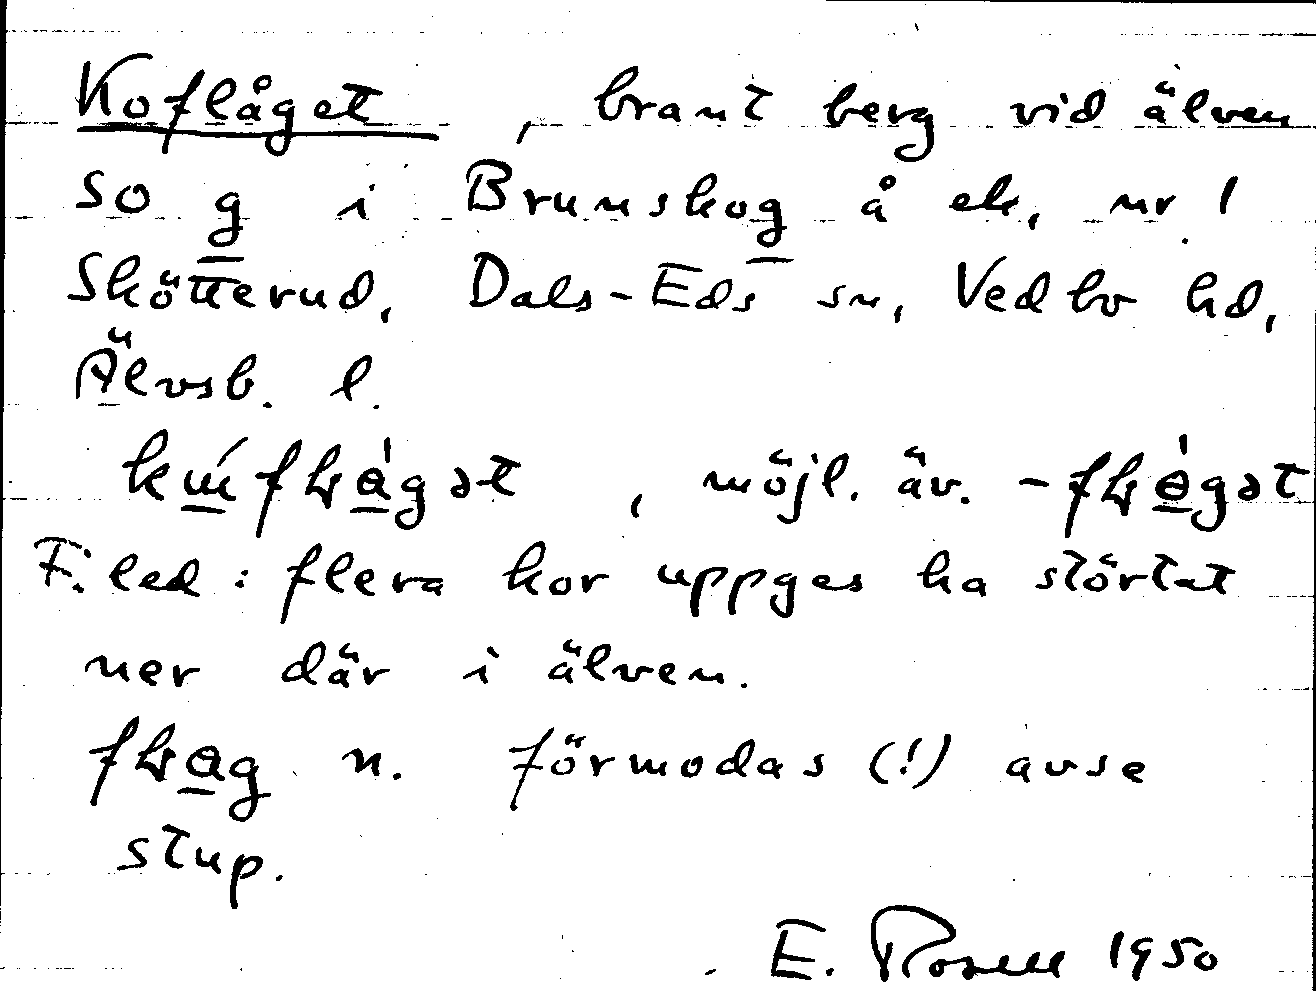 Koflåget, brant berg vid älven
so g i Brunskog å ek. nr 1
Skötterud, Dals-Eds sn, Vedbo hd,
Älvsb. l.
möjl. äv.
F. led: flera kor uppges ha störtat
ner där i älven.
n. förmodas (!) avse
stup.
E. Rosell 1950